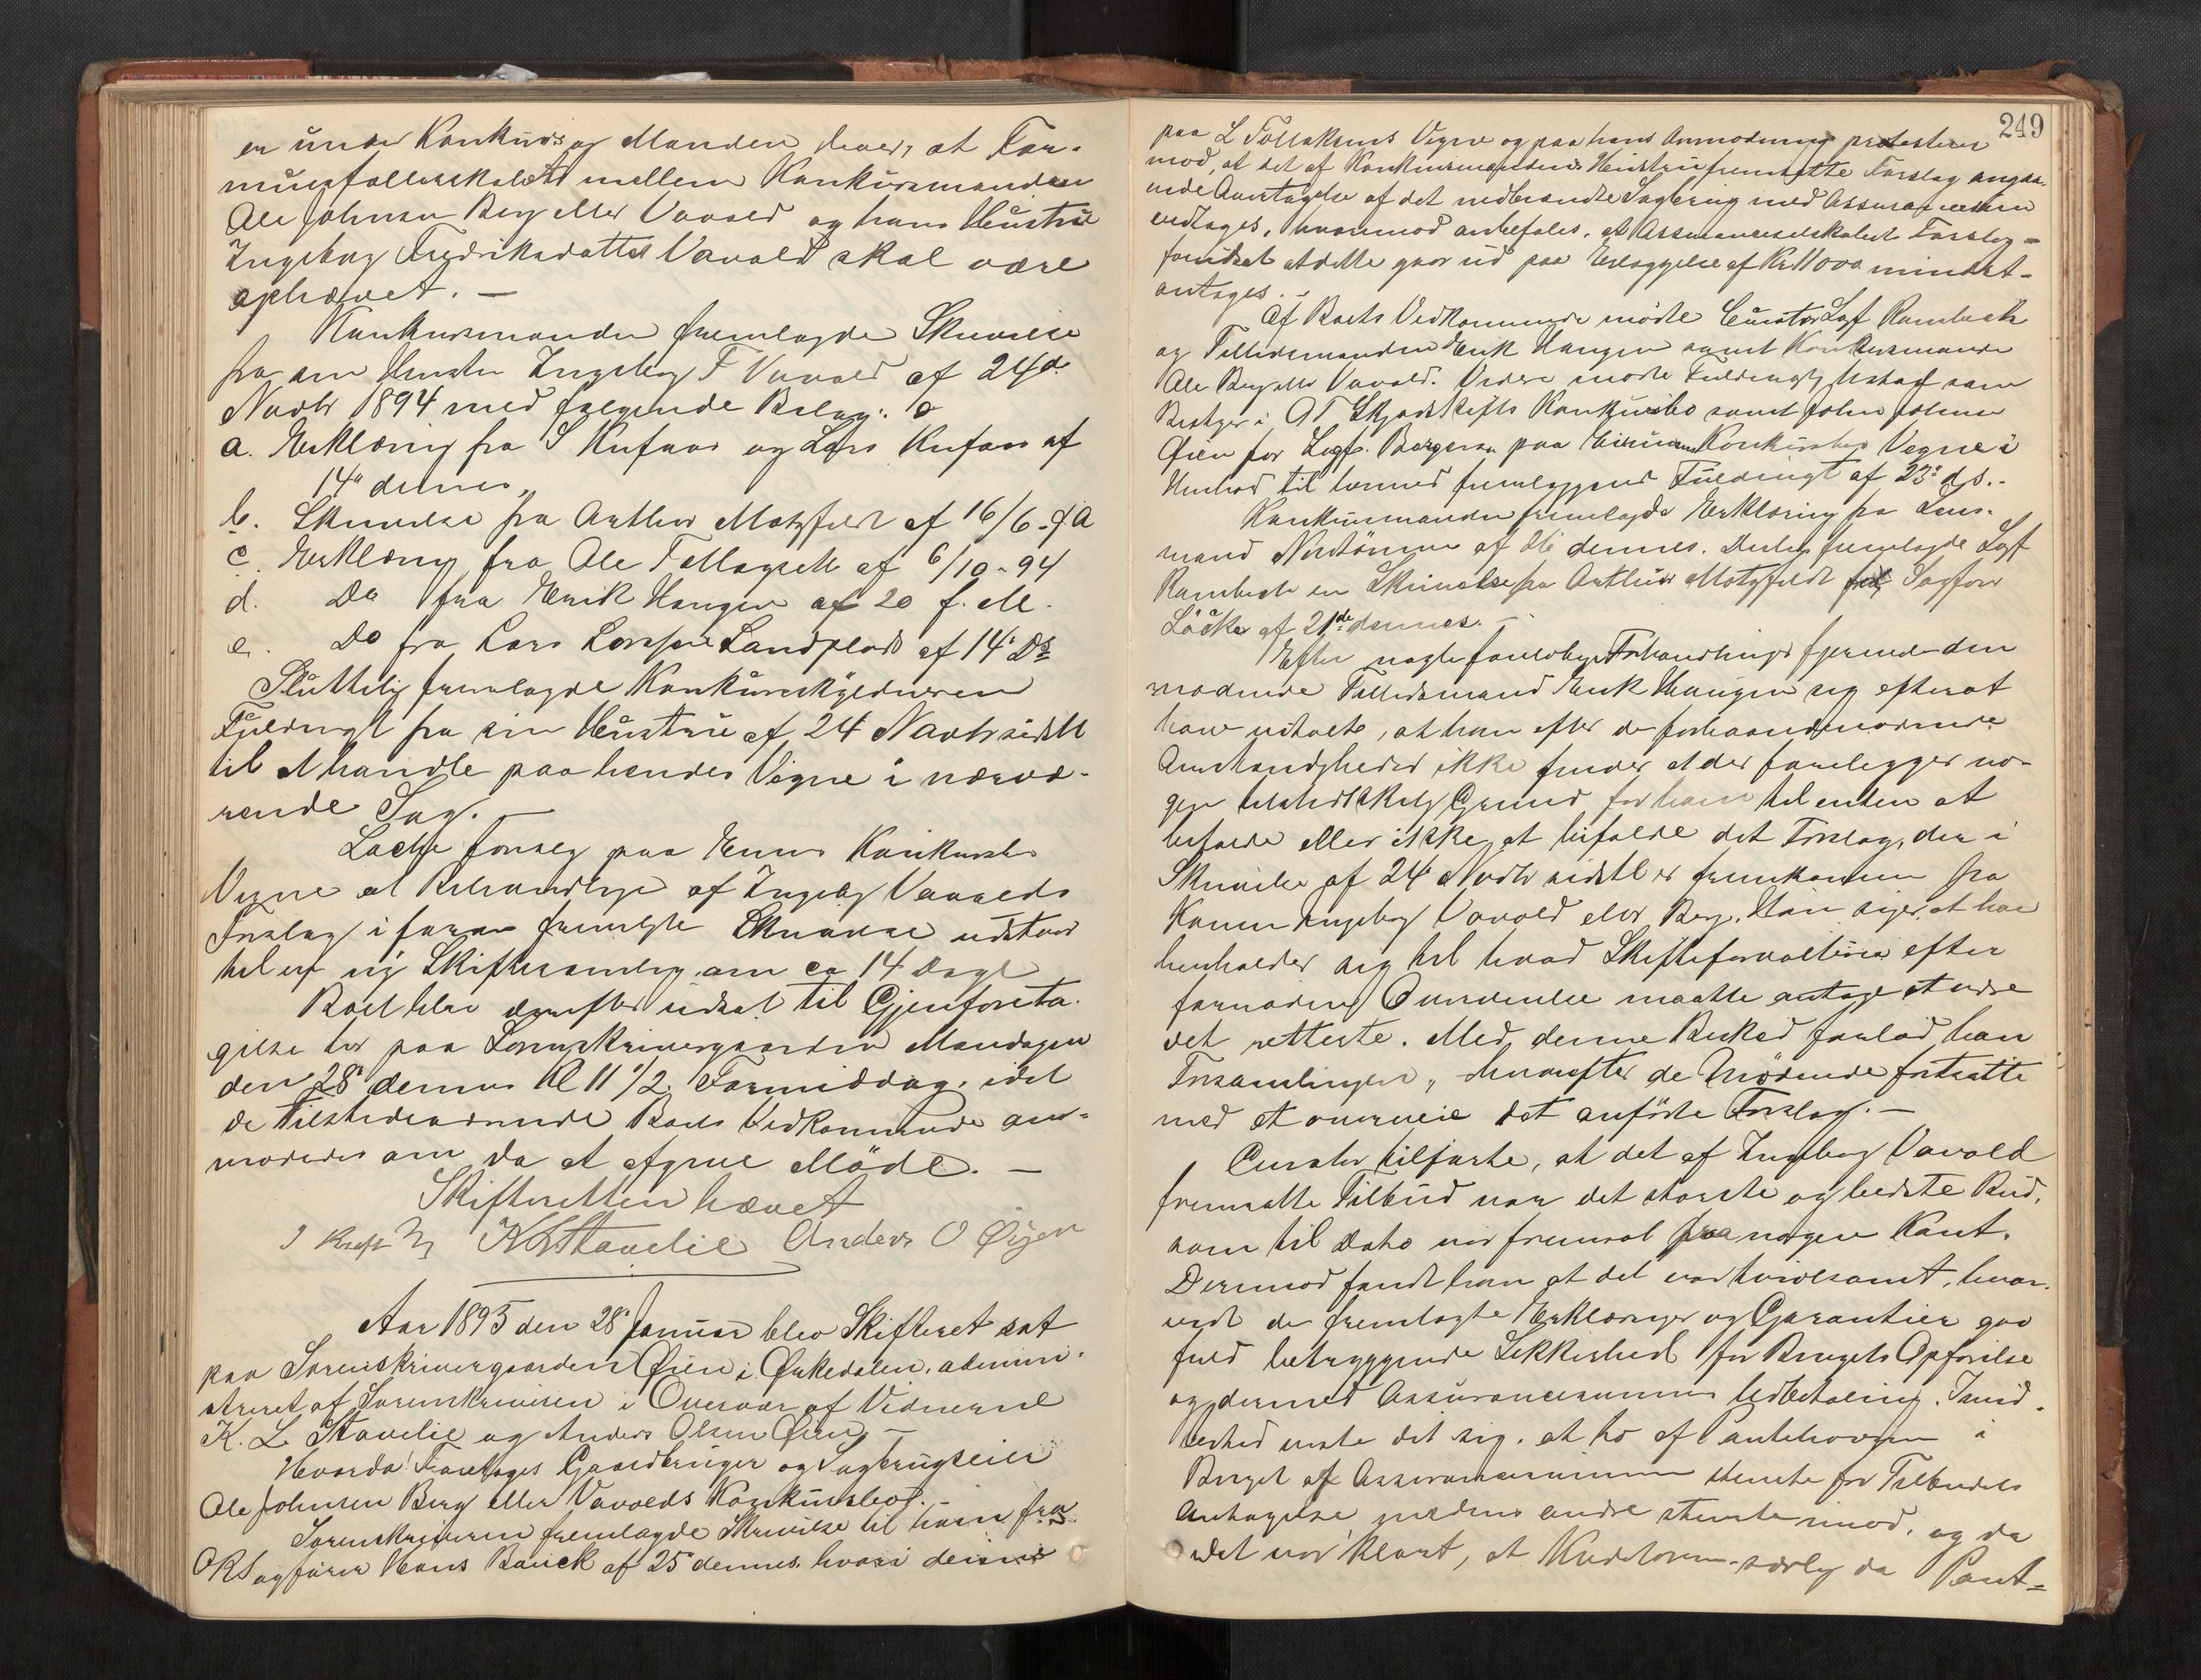 er under Konkurs og Manden hever, at For-
muesfællesskabet mellem Konkursmanden
Ole Johnsen Berg eller Vavold og hans Hustru
Ingeborg Fredriksdatter Vavold skal være
ophævet. —
Konkursmanden fremlagde Skrivelse
fra sin Hustru Ingeborg F Vavold af 24de
Novbr 1894 med følgende Bilag:
a. Erklæring fra S Kufaas og Lars Kufaas af
14de dennes,
b. Skrivelse fra Arthur Motzfeldt af 16/6 f.A
c. Erklæring fra Ole Follagsett af 6/10-94
d. Do fra Erik Haugen af 20 f. M.
e. Do fra Lars Larssen Sandplads af 14de Ds
Sluttelig fremlagde Konkursskyldneren
Fuldmagt fra sin Hustru af 24 Novbr sidstl
til at handle paa hendes Vegne i nærvæ-
rende Sag. —
Løcke foreslog paa Konkursbo
Vegne at Behandlige af Ingeborg Vavolds
Forslag i foran fremlgte Skrivelse udstod
til en ny Skiftesamling om ca 14 Dage
Boet blev derefter udsat til Gjenforeta-
gelse her paa Sorenskrivergaarden Mandagen
den 28de dennes Kl 11 1/2 Formiddag, idet
de Tilstedeværende Boets Vedkommende an-
modedes om da at afgive Møde. —
Skifteretten hævet
K L Stavelie Anders O Øyen
Aar 1895 den 28de Januar blev Skifteret sat
paa Sorenskrivergaarden Øien i Ørkedalen, admini-
streret af Sorenskriveren i Overvær af Vidnerne
K. L. Stavelie og Anders Olsen Øien —
Hvorda Foretoges Gaardbruger og Sagbrugseier
Ole Johnsen Berg eller Vavolds Konkursbo. —
Sorenskriveren fremlagde Skrivelse til ham fra
ORSagfører Hans Bauck af 25de dennes, hvori denne
249
paa L Follaksens Vegne og paa hans Anmodning protesterer
mod, at det af Konkursmandens Hustru fremsatte Forslag angaa-
ende Overtagelse af det nedbrændte Sagbrug med Assurancesum
vedtages, hvorimod anbefales, at Assuranceselskabets Forslag -
forudsat at dette gaar ud paa Erlæggelse af Kr 11000 mindst -
antages. —
Af Boets Vedkommende mødte Curator Sagf Rambech
og Tillidsmanden Erik Haugen samt Konkursmanden
Ole Berg eller Vavold. Videre mødte Fuldmægtig Ustad som
Bestyrer i O T Skjødtskifts Konkursbo samt John Johnsen
Øien for Sagf. Borgersen paa Konkursbos Vegne i
Henhold til hermed fremlæggende Fuldmagt af 23de ds. -
Konkursmanden fremlagde Erklæring fra Lens-
mand Nestømme af dennes. Derhos fremlagde Sagf
Rambech en Skrivelse fra Arthur Motzfeldt til Sagfører
Löcke af 21de dennes. —
Efter nogle foreløbige Forhandlinger fjernede den
mødende Tillidsmand Erik Haugen sig efterat
have udtalt, at han efter de forhaandenværende
Omstændigheder ikke finder at der foreligger no-
gen tilstrekkelig Grund for ham til enten at
bifalde eller ikke at bifalde det Forslag, der i
Skrivelse af 24de Novbr sidstl er fremkommen fra
Konen Ingeborg Vavold eller Berg. Han siger, at han
henholder sig til hvad Skifteforvalteren efter
fornøden Overveielse maatte antage at være
det retteste. Med denne Besked forlod han
Forsamlingen, hvorefter de Mødende fortsatte
med at overveie det anførte Forslag. —
Curator tilførte, at det af Ingeborg Vavold
fremsatte Tilbud var det største og bedste Bud,
som til Dato var fremsat fra nogen Kant.
Derimod fandt han at det var tvivlsomt, hvor-
vidt de fremlagte Erklæringer og Garantier gav
fuld betryggende Sikkerhed for Brugets Opførelse
og dermed Assurancesummens Udbetaling. Imid-
lertid viste det sig, at to af Panthaverne i
Bruget af Assurancesummen stemte for Tilbudets
Antagelse medens andre stemte imod, og da
det var klart, at Kreditorerne særlig da Pant-